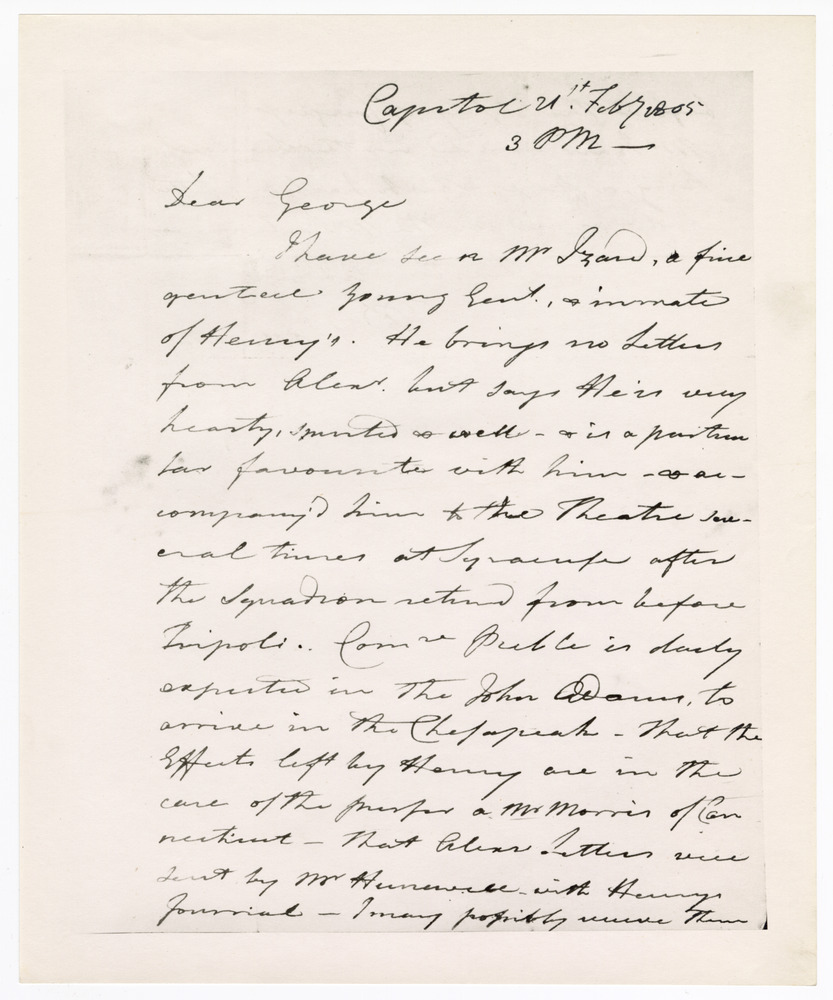 Capitol 21st. Feby 1805
3 PM —
Dear George
I have seen Mr Izard, a fine
genteel young Gent., & inmate
of Henry's. He brings no Letters
from Alexr. but says He is very
hearty, spirited & well - & is a particu
lar favourite with him - & ac-
company'd him to the Theatre sev-
eral times at Syracuse after
the Squadron returnd from before
Tripoli.. Comre Preble is daily
expected in the John Adams, to
arrive in the Chesapeak - that the
Effects left by Henry are in the
care of the purser a Mr Morris of Con
necticut - that Alexr Letters were
sent by Mr Hunewell with Henrys
Journal - I may possibly receive them